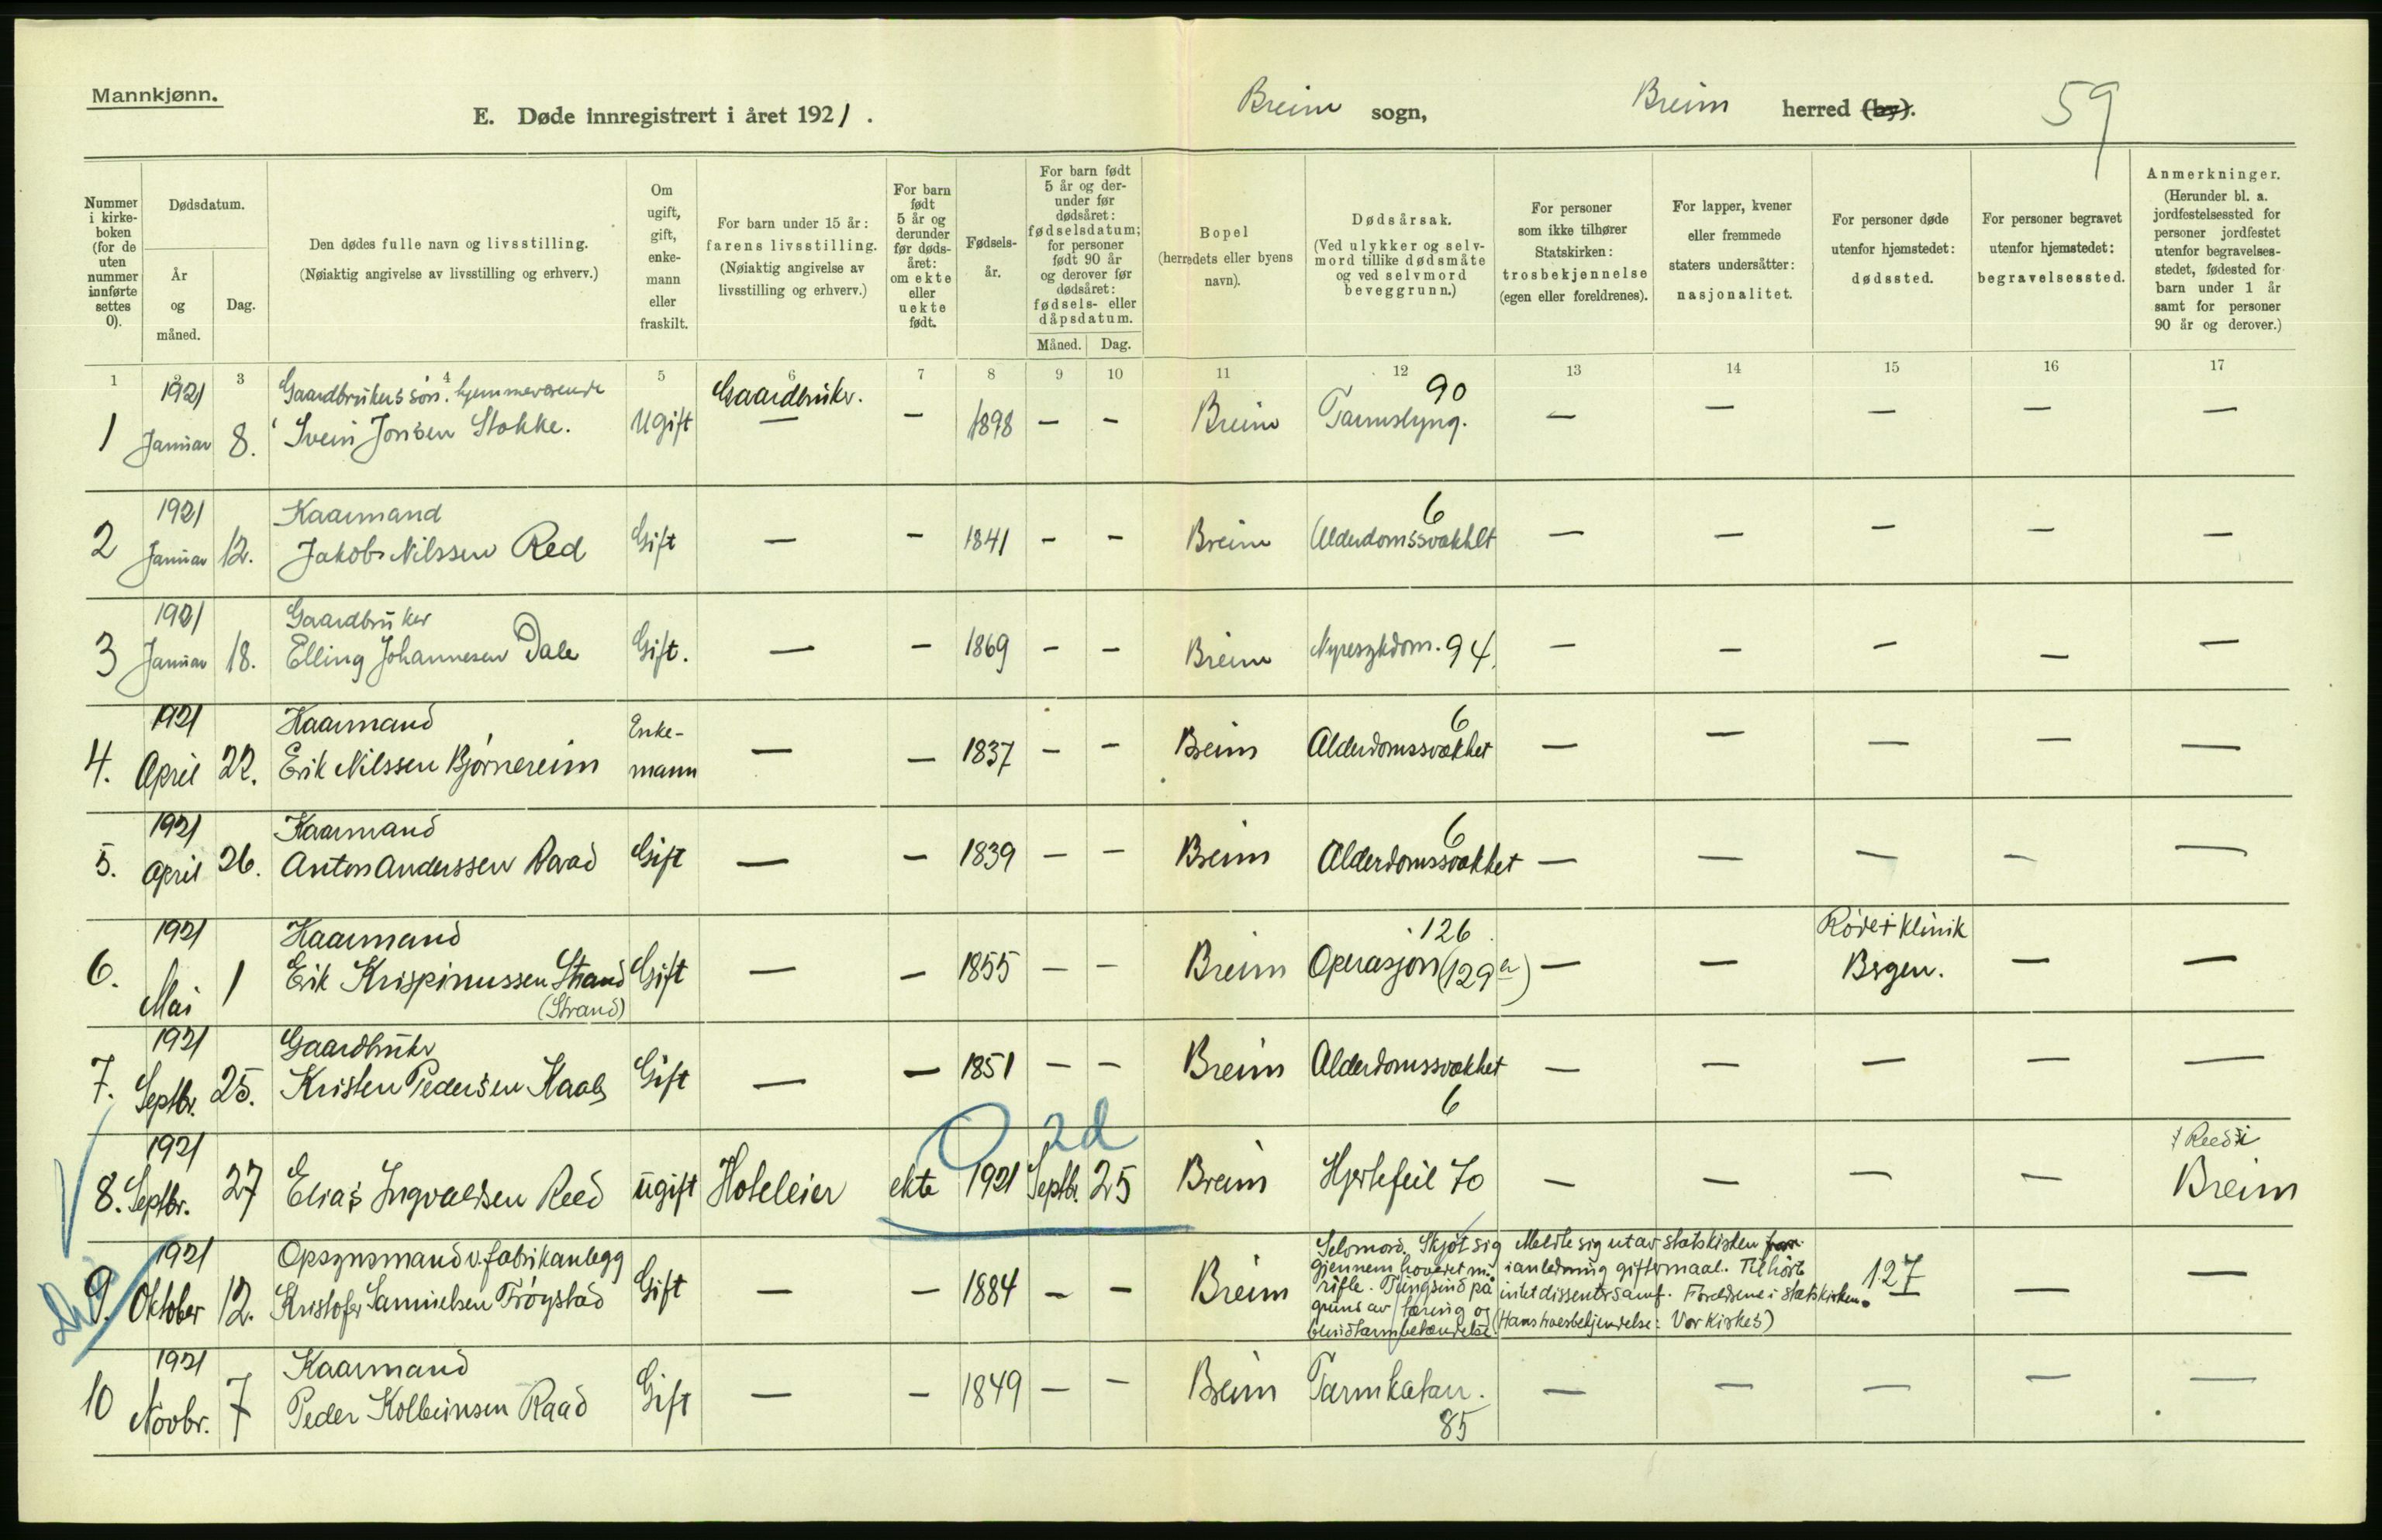 Mannkjønn.
E. Døde innregistrert i året 1921.
Breim sogn,
Breim herred (by).
59
Nummer i kirke-boken (for de uten nummer innførte settes 0).
Dødsdatum.
År og måned.
Dag.
Den dødes fulle navn og livsstilling.
(Nøiaktig angivelse av livsstilling og erhverv.)
Om ugift, gift, enke-mann eller fraskilt.
For barn under 15 år: farens livsstilling.
(Nøiaktig angivelse av livsstilling og erhverv.)
For barn født 5 år og derunder før døds-året: om ekte eller uekte født.
Fødsels-år.
For barn født 5 år og der-under før dødsåret: fødselsdatum; for personer født 90 år og derover før dødsåret: fødsels- eller dåpsdatum.
Måned. Dag.
Bopel
(herredets eller byens navn).
Dødsårsak.
(Ved ulykker og selv-mord tillike dødsmåte og ved selvmord beveggrunn.)
For personer som ikke tilhører Statskirken: trosbekjennelse (egen eller foreldrenes).
For lapper, kvener eller fremmede staters undersåtter: nasjonalitet.
For personer døde utenfor hjemstedet: dødssted.
For personer begravet utenfor hjemstedet: begravelsessted.
Anmerkninger.
(Herunder bl. a. jordfestelsessted for personer jordfestet utenfor begravelses-stedet, fødested for barn under 1 år samt for personer 90 år og derover.)
1 2 3 4 5 6 7 8 9 10 11 12 13 14 15 16 17
1921 Gaardbrukers søn. hjemmeværende Gaardbruker. 90
1 Januar 8. Svein Jonsen Stokke. Ugift — — 1898 — — Breim Tarmslyng. — — — — —
1921 Kaarmand 6
2 Januar 12. Jakob Nilssen Red Gift — — 1841 — — Breim Alderdomssvakhet — — — — —
1921 Gaardbruker
3 Januar 18. Elling Johannesen Dale Gift. — — 1869 — — Breim Nyresykdom. 94. — — — — —
1921 Kaarmand Enke- 6
4. April 22. Erik Nilssen Bjørnereim mann — — 1837 — — Breim Alderdomssvakhet — — — — —
1921 Kaarmand 6
5. April 26. Anton Anderssen Raad Gift — — 1839 — — Breim Alderdomssvakhet — — — — —
1921 Kaarmand 126 Røde + klinik
6. Mai 1 Erik Krispinussen Strand Gift — — 1855 — — Breim Operasjon (129a) — — Bergen. — —
(Strand)
1921 Gaardbruker
7. Septbr. 25. Kristen Pedersen Kaale Gift — — 1851 — — Breim Alderdomssvakhet — — — — —
6
2d
1921 Reed i
8. Septbr. 27 Elias Ingvaldsen Reed ugift Hoteleier ekte 1921 Septbr. 25 Breim Hjertefeil 70 — — — — Breim
1921 Opsynsmand v. fabrikanlegg
9. Oktober 12. Kristofer Samuelsen Frøystad Gift — — 1884 — — Breim
Selvmord. Skjøt sig
gjennem hovedet m.
rifle. Tungsind på
grund av tæring og
blindtarmbetændelse.
Meldte sig ut av statskirken
i anledning giftermaal. Tilhørte
intet dissentersamf. Foreldrene i statskirken.
(Hans troesbekjendelse: Vor kirkes)
127 — —
1921 Kaarmand
10 Novbr. 7 Peder Kolbeinsen Raad Gift — — 1849 — — Breim Tarmkatarr. — — — — —
85